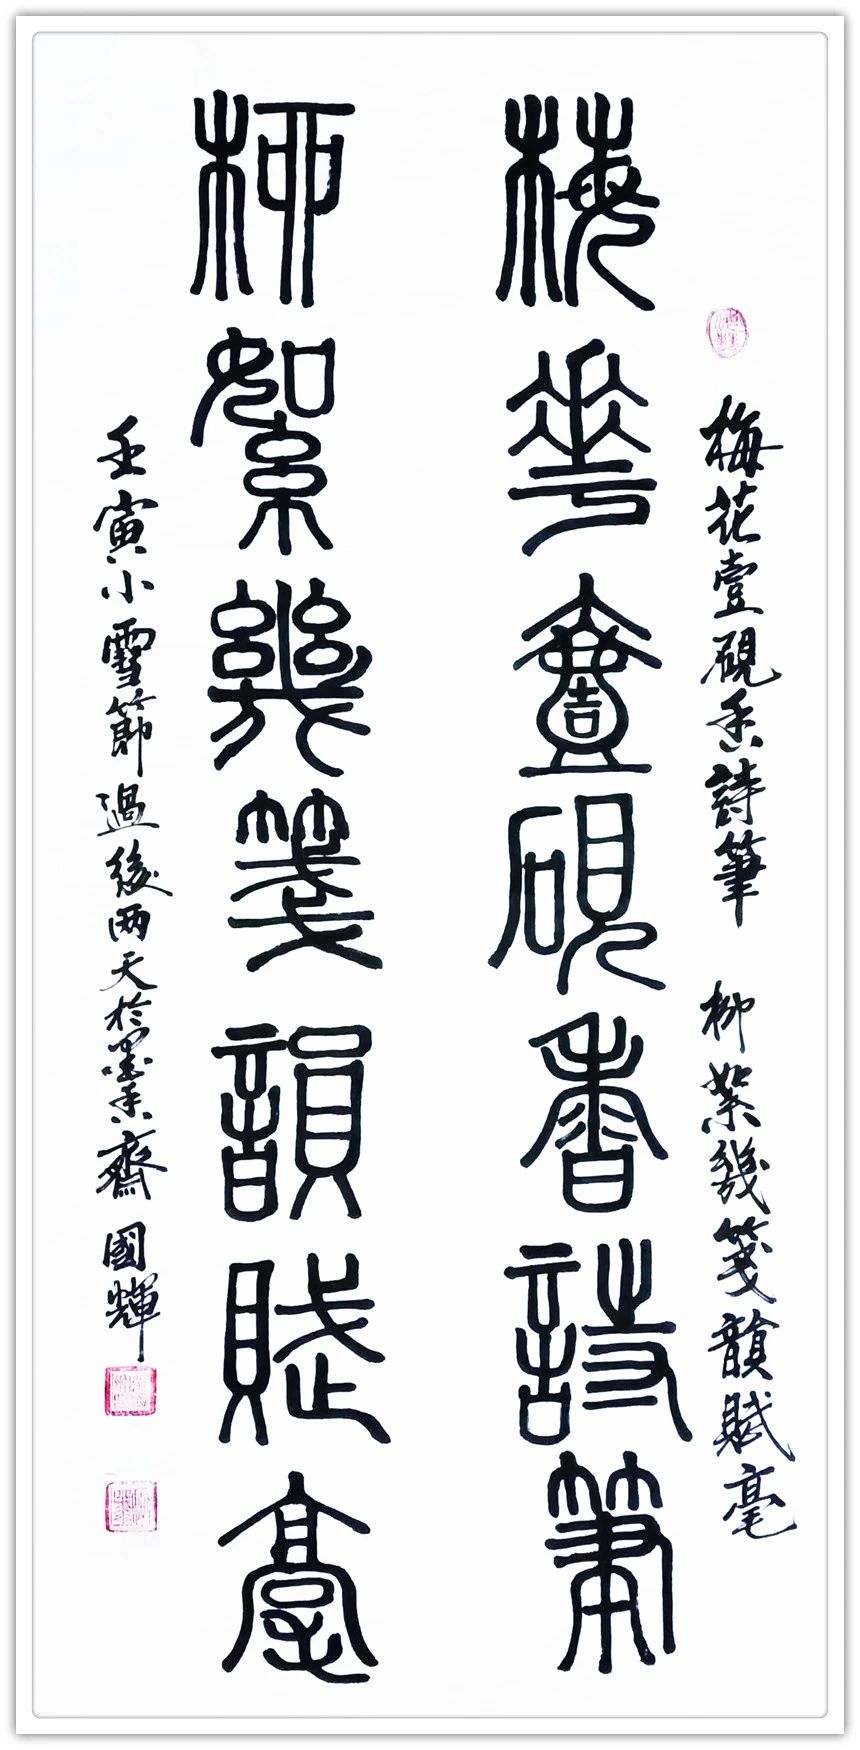 梅花壹硯香詩筆柳絮幾箋韻賦毫
梅華壹硯香詩筆
柳絮幾箋韻賦毫
壬寅小雪節過後兩天於墨香齋國輝